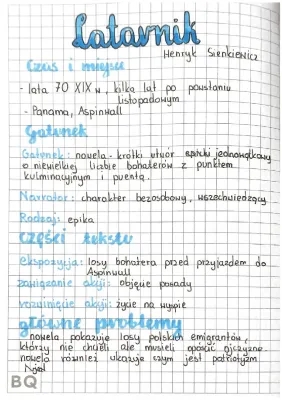 Latarnik
Henryk Sienkiewicz
Czas i miejsce
- lata 70 XIX w, kilka lat po powstaniu
listopadowym
- Panama, Aspinwall
Gatunek
Gatunek: nowela - krótki utwór epicki jednowątkowy
o niewielkiej liczbie bohaterów z punktem
kulminacyjnym i puentą.
Narrator: charakter bezosobowy, wszechwiedzący
Rodzaj: epika
części tekstu
ekspozycja: losy bohatera przed przyjazdem do
Aspinwall
zawiązanie akcji: objęcie posady
rozwinięcie akcji: życie na wyspie
główne problemy
nowela pokazuje losy polskich emigrantów,
którzy nie chcieli ale musieli opuścić ojczyznę
nowela również ukazuje czym jest patriotyzm
BQ